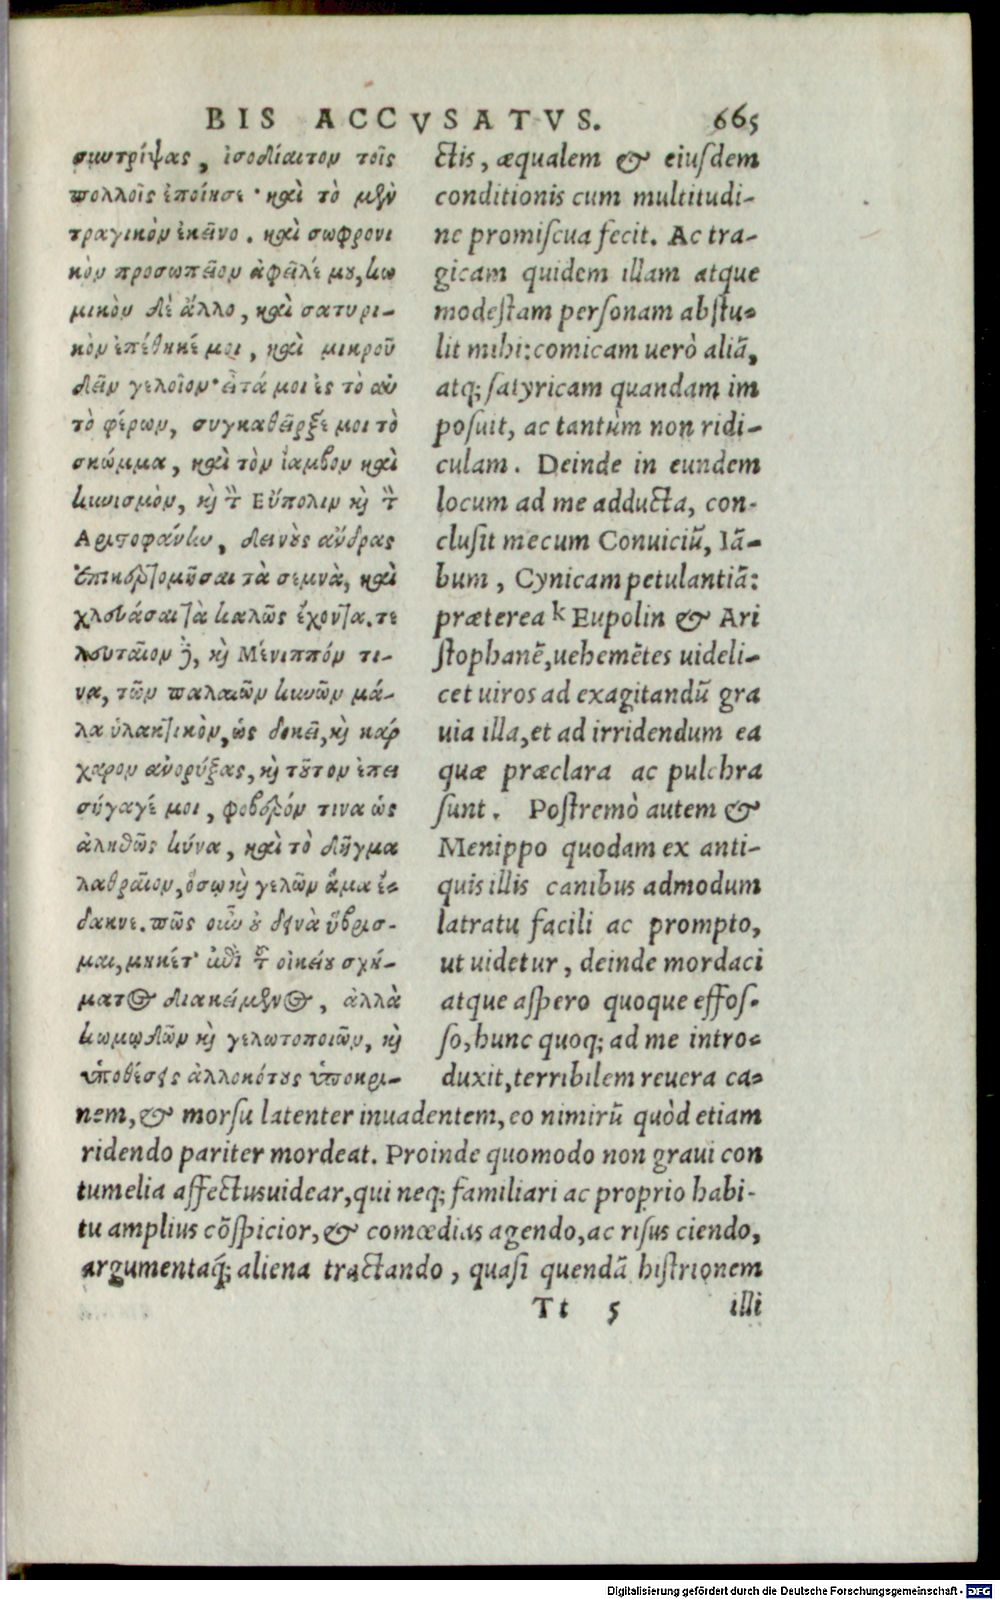 BIS ACCVSATVS. 665
συντρίψας, ἰσοδίαιτον τοῖς
πολλοῖς ἐποίησε· καὶ τὸ μὲν
τραγικὸν ἐκεῖνο. καὶ σωφρονι
κὸν προσωπεῖον ἀφεῖλέ μου, κω
μικὸν δὲ ἄλλο, καὶ σατυρι-
κὸν ἐπέθηκέ μοι, καὶ μικροῦ
δεῖν γελοῖον· εἶτά μοι ἐς τὸ αὐ
τὸ φέρων, συγκαθεῖρξέ μοι τὸ
σκῶμμα, καὶ τὸν ἴαμβον καὶ
κυνισμὸν, καὶ τὸν Εὔπολιν καὶ τὸν
Αριστοφάνην, δεινοὺς ἄνδρας
ἐπικερτομῆσαι τὰ σεμνὰ, καὶ
χλευάσαι τὰ καλῶς ἔχοντα. τε
λευταῖον δὲ, καὶ Μένιππόν τι-
να, τῶν παλαιῶν κυνῶν μά-
λα ὑλακτικὸν, ὡς δοκεῖ, καὶ κάρ
χαρον ἀνορύξας, καὶ τοῦτον ἐπει
σήγαγέ μοι, φοβερόν τινα ὡς
ἀληθῶς κύνα, καὶ τὸ δῆγμα
λαθραῖον, ὅσῳ καὶ γελῶν ἅμα ἔ-
δακνε. πῶς οὖν οὐ δεινὰ ὕβρισ-
μαι, μηκέτ' ἐπὶ τοῦ οἰκείου σχή-
ματος διακείμενος, ἀλλὰ
κωμῳδῶν καὶ γελωτοποιῶν, καὶ
ὑποθέσεις ἀλλοκότους ὑποκρι-
ctis, æqualem & eiusdem
conditionis cum multitudi-
ne promiscua fecit. Ac tra-
gicam quidem illam atque
modestam personam abstu-
lit mihi: comicam uerò aliã,
atq; satyricam quandam im
posuit, ac tantùm non ridi-
culam. Deinde in eundem
locum ad me adducta, con-
clusit mecum Conuiciũ, Iã-
bum, Cynicam petulantiã:
præterea k Eupolin & Ari
stophanẽ, uehemẽtes uideli-
cet uiros ad exagitandũ gra
uia illa, et ad irridendum ea
quæ præclara ac pulchra
sunt. Postremò autem &
Menippo quodam ex anti-
quis illis canibus admodum
latratu facili ac prompto,
ut uidetur, deinde mordaci
atque aspero quoque effos-
so, hunc quoq; ad me intro-
duxit, terribilem reuera ca-
nem, & morsu latenter inuadentem, eo nimirũ quòd etiam
ridendo pariter mordeat. Proinde quomodo non graui con
tumelia affectus uidear, qui neq; familiari ac proprio habi-
tu amplius cõspicior, & comœdias agendo, ac risus ciendo,
argumentaq́; aliena tractando, quasi quendã histrionem
Tt 5 illi
Digitalisierung gefördert durch die Deutsche Forschungsgemeinschaft - DFG